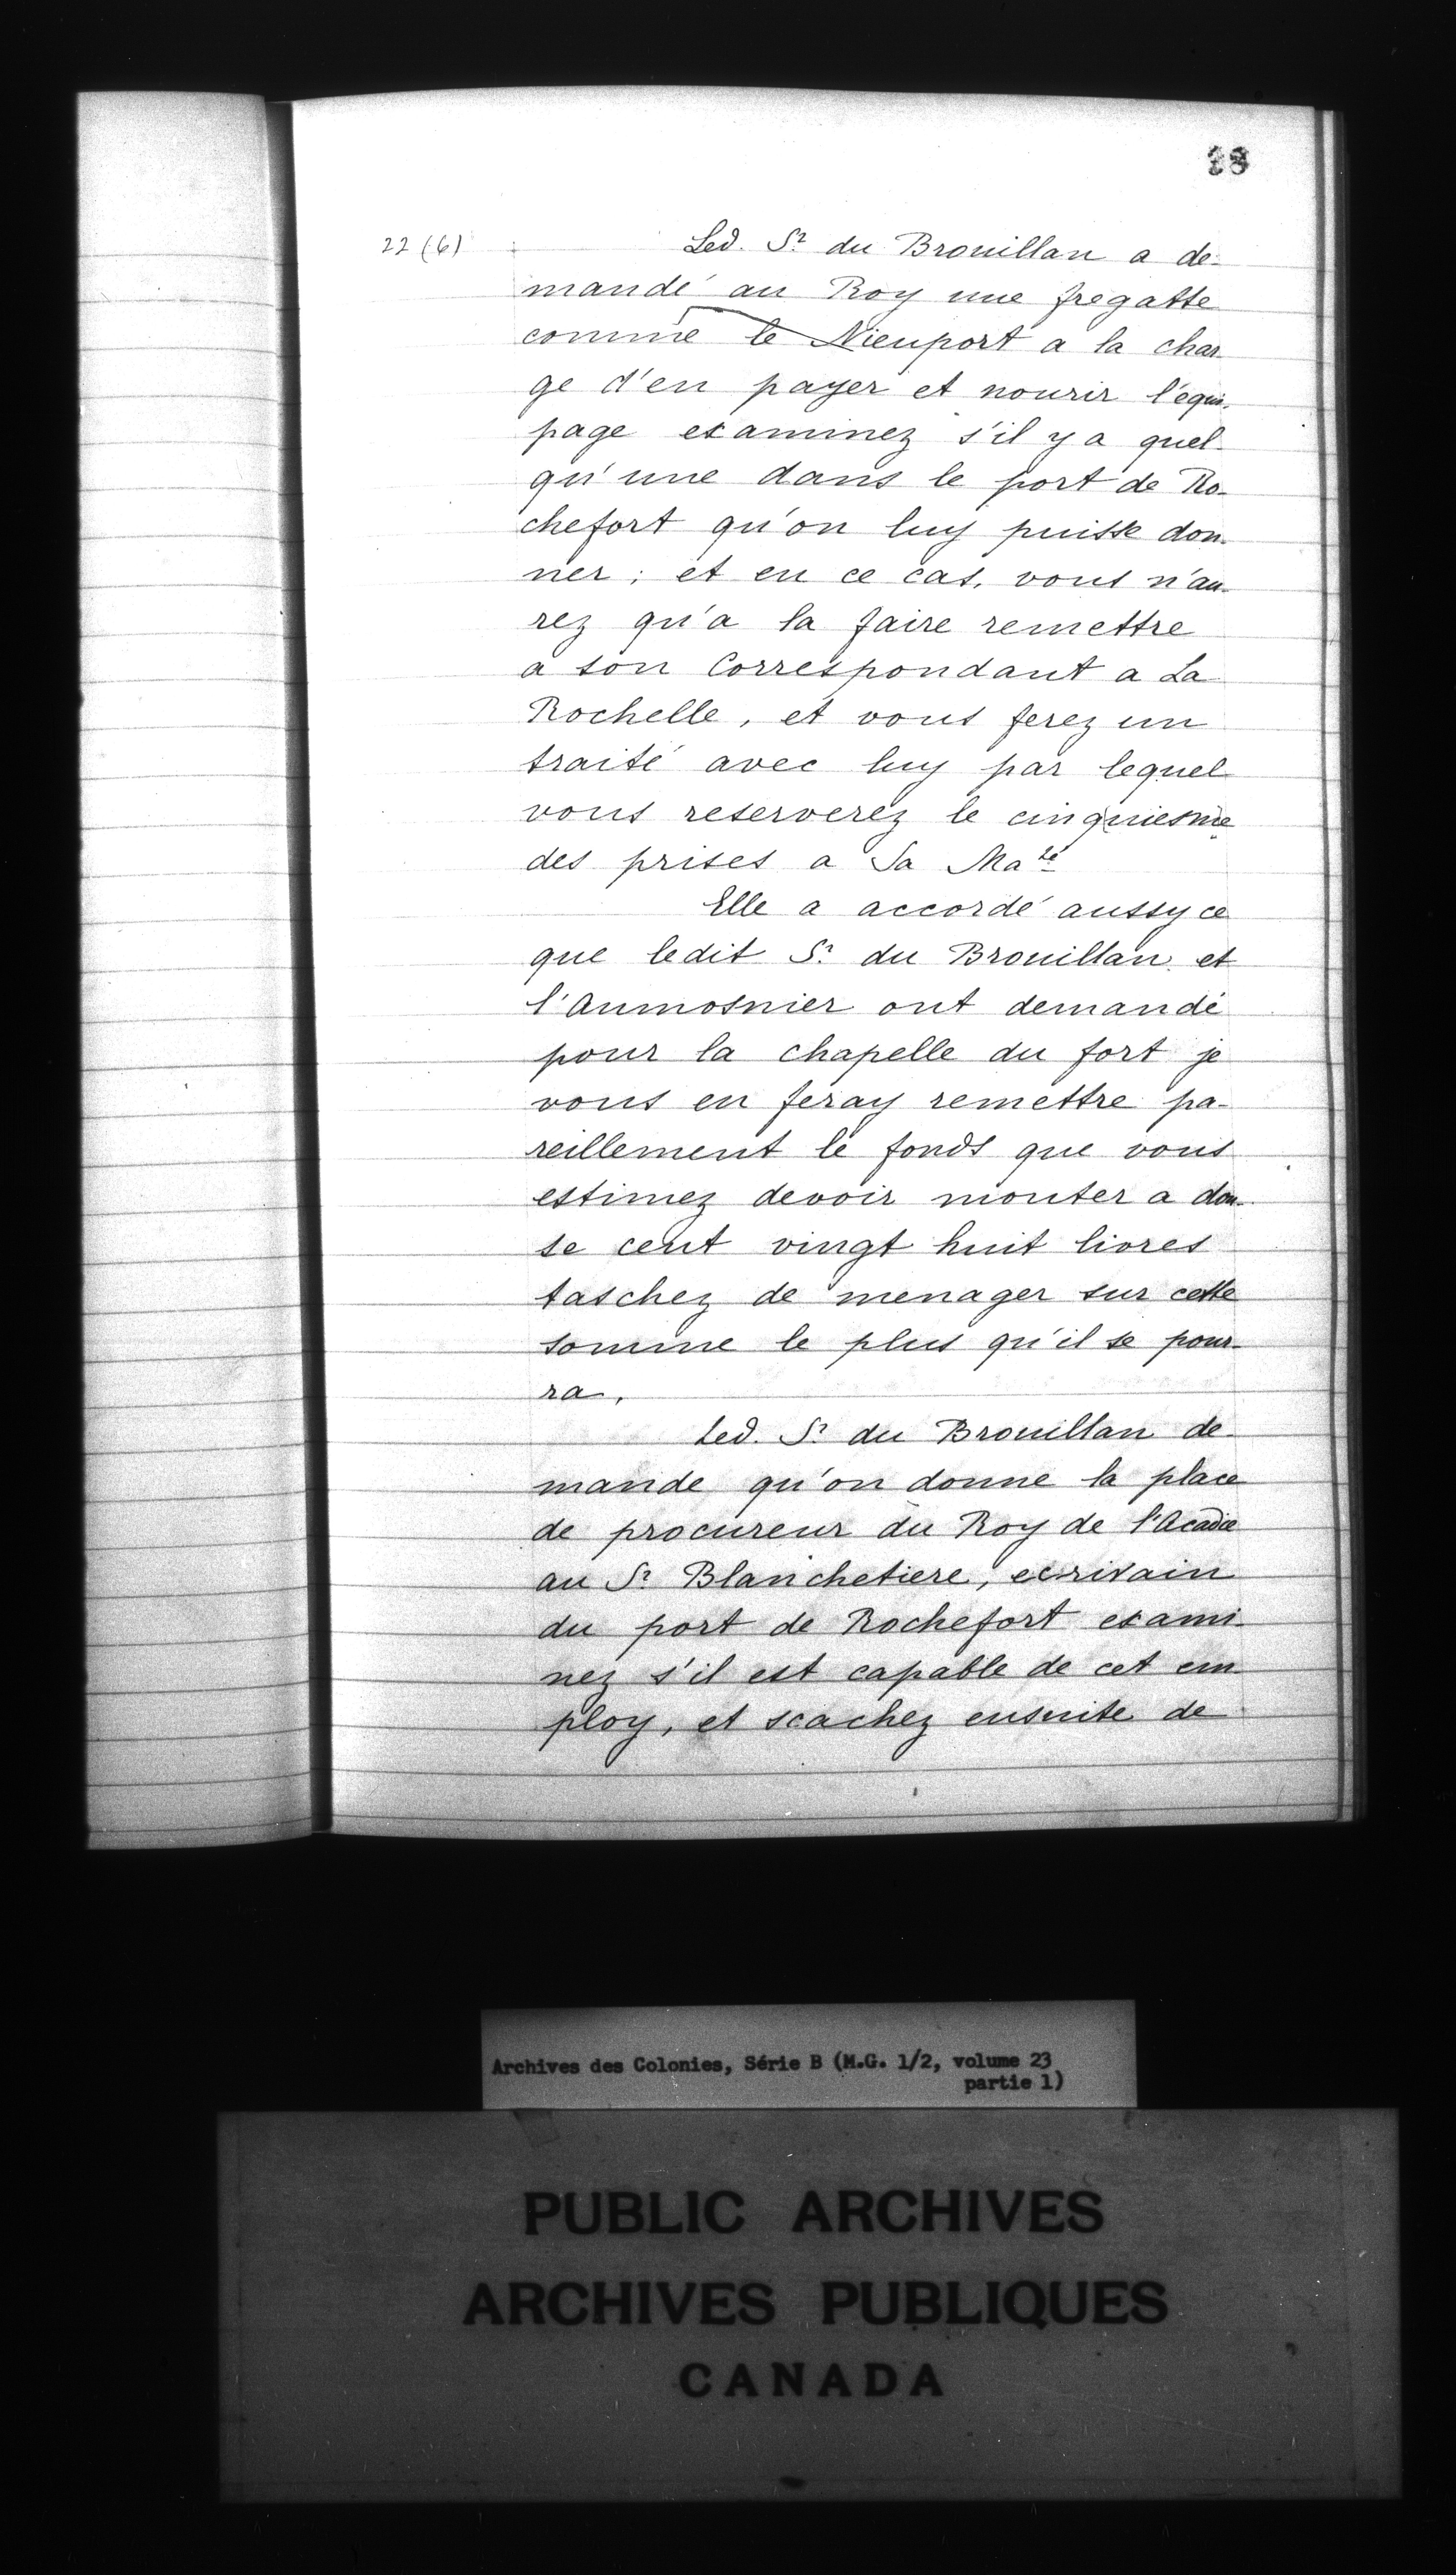 22 (6)
Led. Sr. du Brouillan a de-
mandé au Roy une fregatte
comme le Nieuport a la char-
ge d'en payer et nourir l'équi-
page examinez s'il y a quel-
qu'une dans le port de Ro-
chefort qu'on luy puisse don-
ner ; et en ce cas, vous n'au-
rez qu'a la faire remettre
a son Correspondant a La
Rochelle, et vous ferez un
traité avec luy par lequel
vous reserverez le cinquiesme
des prises a Sa Maté
Elle a accordé aussy ce
que ledit Sr. du Brouillan et
l'Aumosnier ont demandé
pour la chapelle du fort je
vous en feray remettre pa-
reillement le fonds que vous
estimez devoir monter a dou-
se cent vingt huit livres
taschez de menager sur cette
somme le plus qu'il se pour-
ra,
Led. Sr. du Brouillan de-
mande qu'on donne la place
de procureur du Roy de l'Acadie
au Sr. Blanchetiere, ecrivain
du port de Rochefort exami-
nez s'il est capable de cet em-
ploy, et scachez ensuite de
Archives des Colonies, Série B (M.G. 1/2, volume 23
partie 1)
PUBLIC ARCHIVES
ARCHIVES PUBLIQUES
CANADA